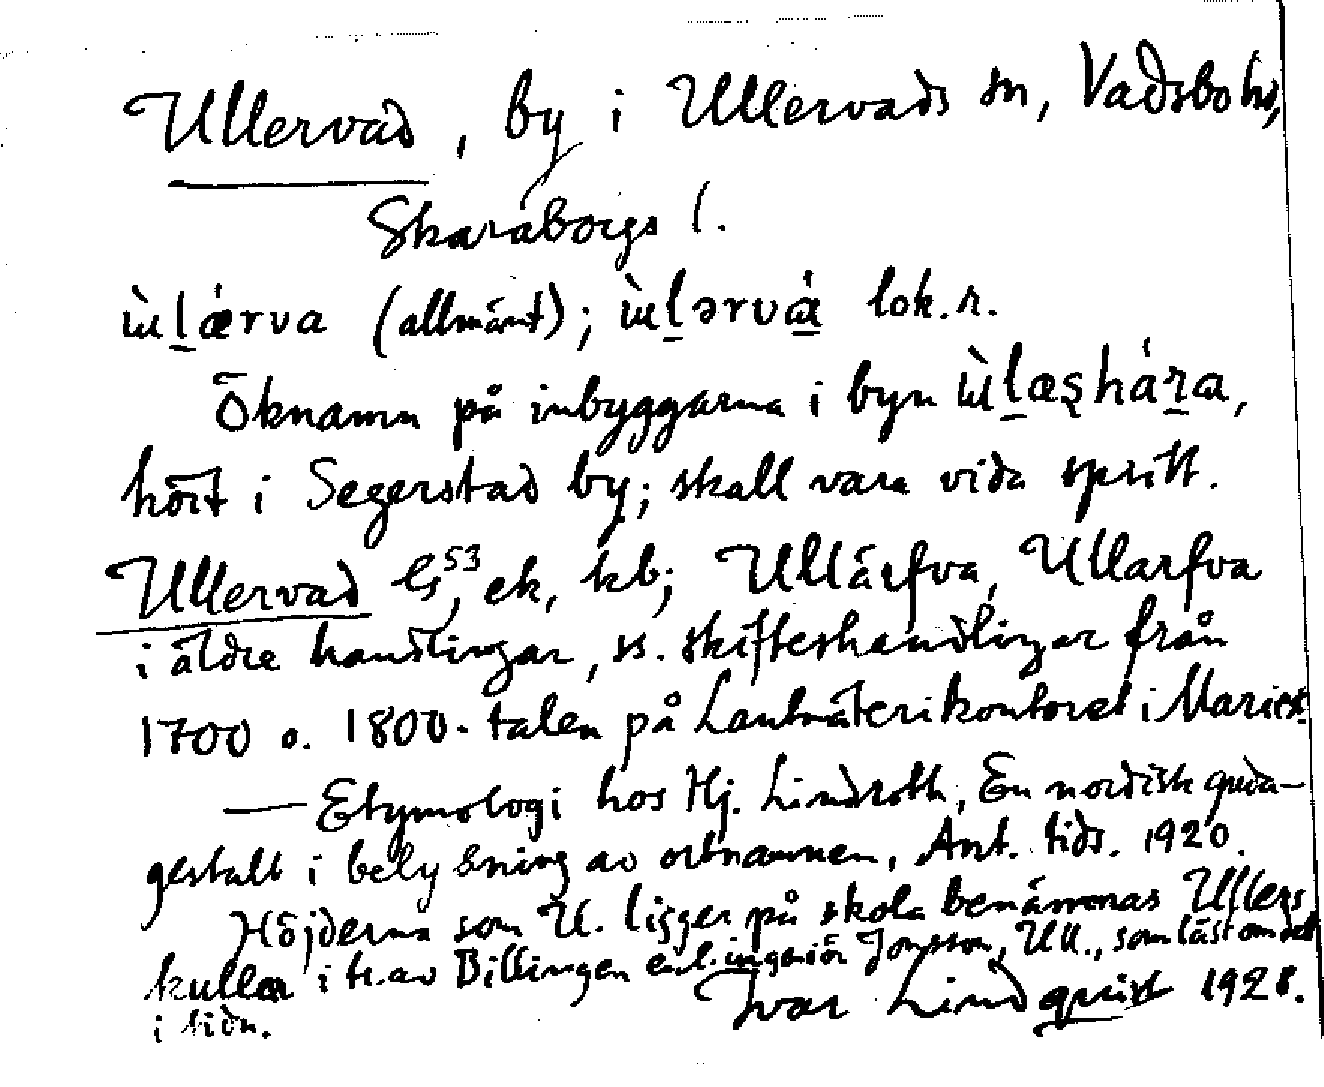 Ullervad, by i Ullervads sn, Vadsbo hd,
Skaraborgs l.
ɯ̀l̠ǽrva (allmänt); ɯ̀l̠ərvá̠ lok. r.
Öknamn på inbyggarna i byn ɯ̀l̠æşhár̠a,
hört i Segerstad by; skall vara vida spritt.
Ullervad G⁵³, ek, kb; Ullärfva, Ullarfva
i äldre handlingar, ss. skifteshandlingar från
1700 o. 1800-talen på Lantmäterikontoret i Mariest.
— Etymologi hos Hj. Lindroth, En nordisk guda-
gestalt i belysning av ortnamnen, Ant. tids. 1920.
Höjderna som U. ligger på skola benämnas Ullers
kullar i h. av Billingen enl. ingeniör Jonsson, Ull., som läst om det
i tidn.
Ivar Lindquist 1928.